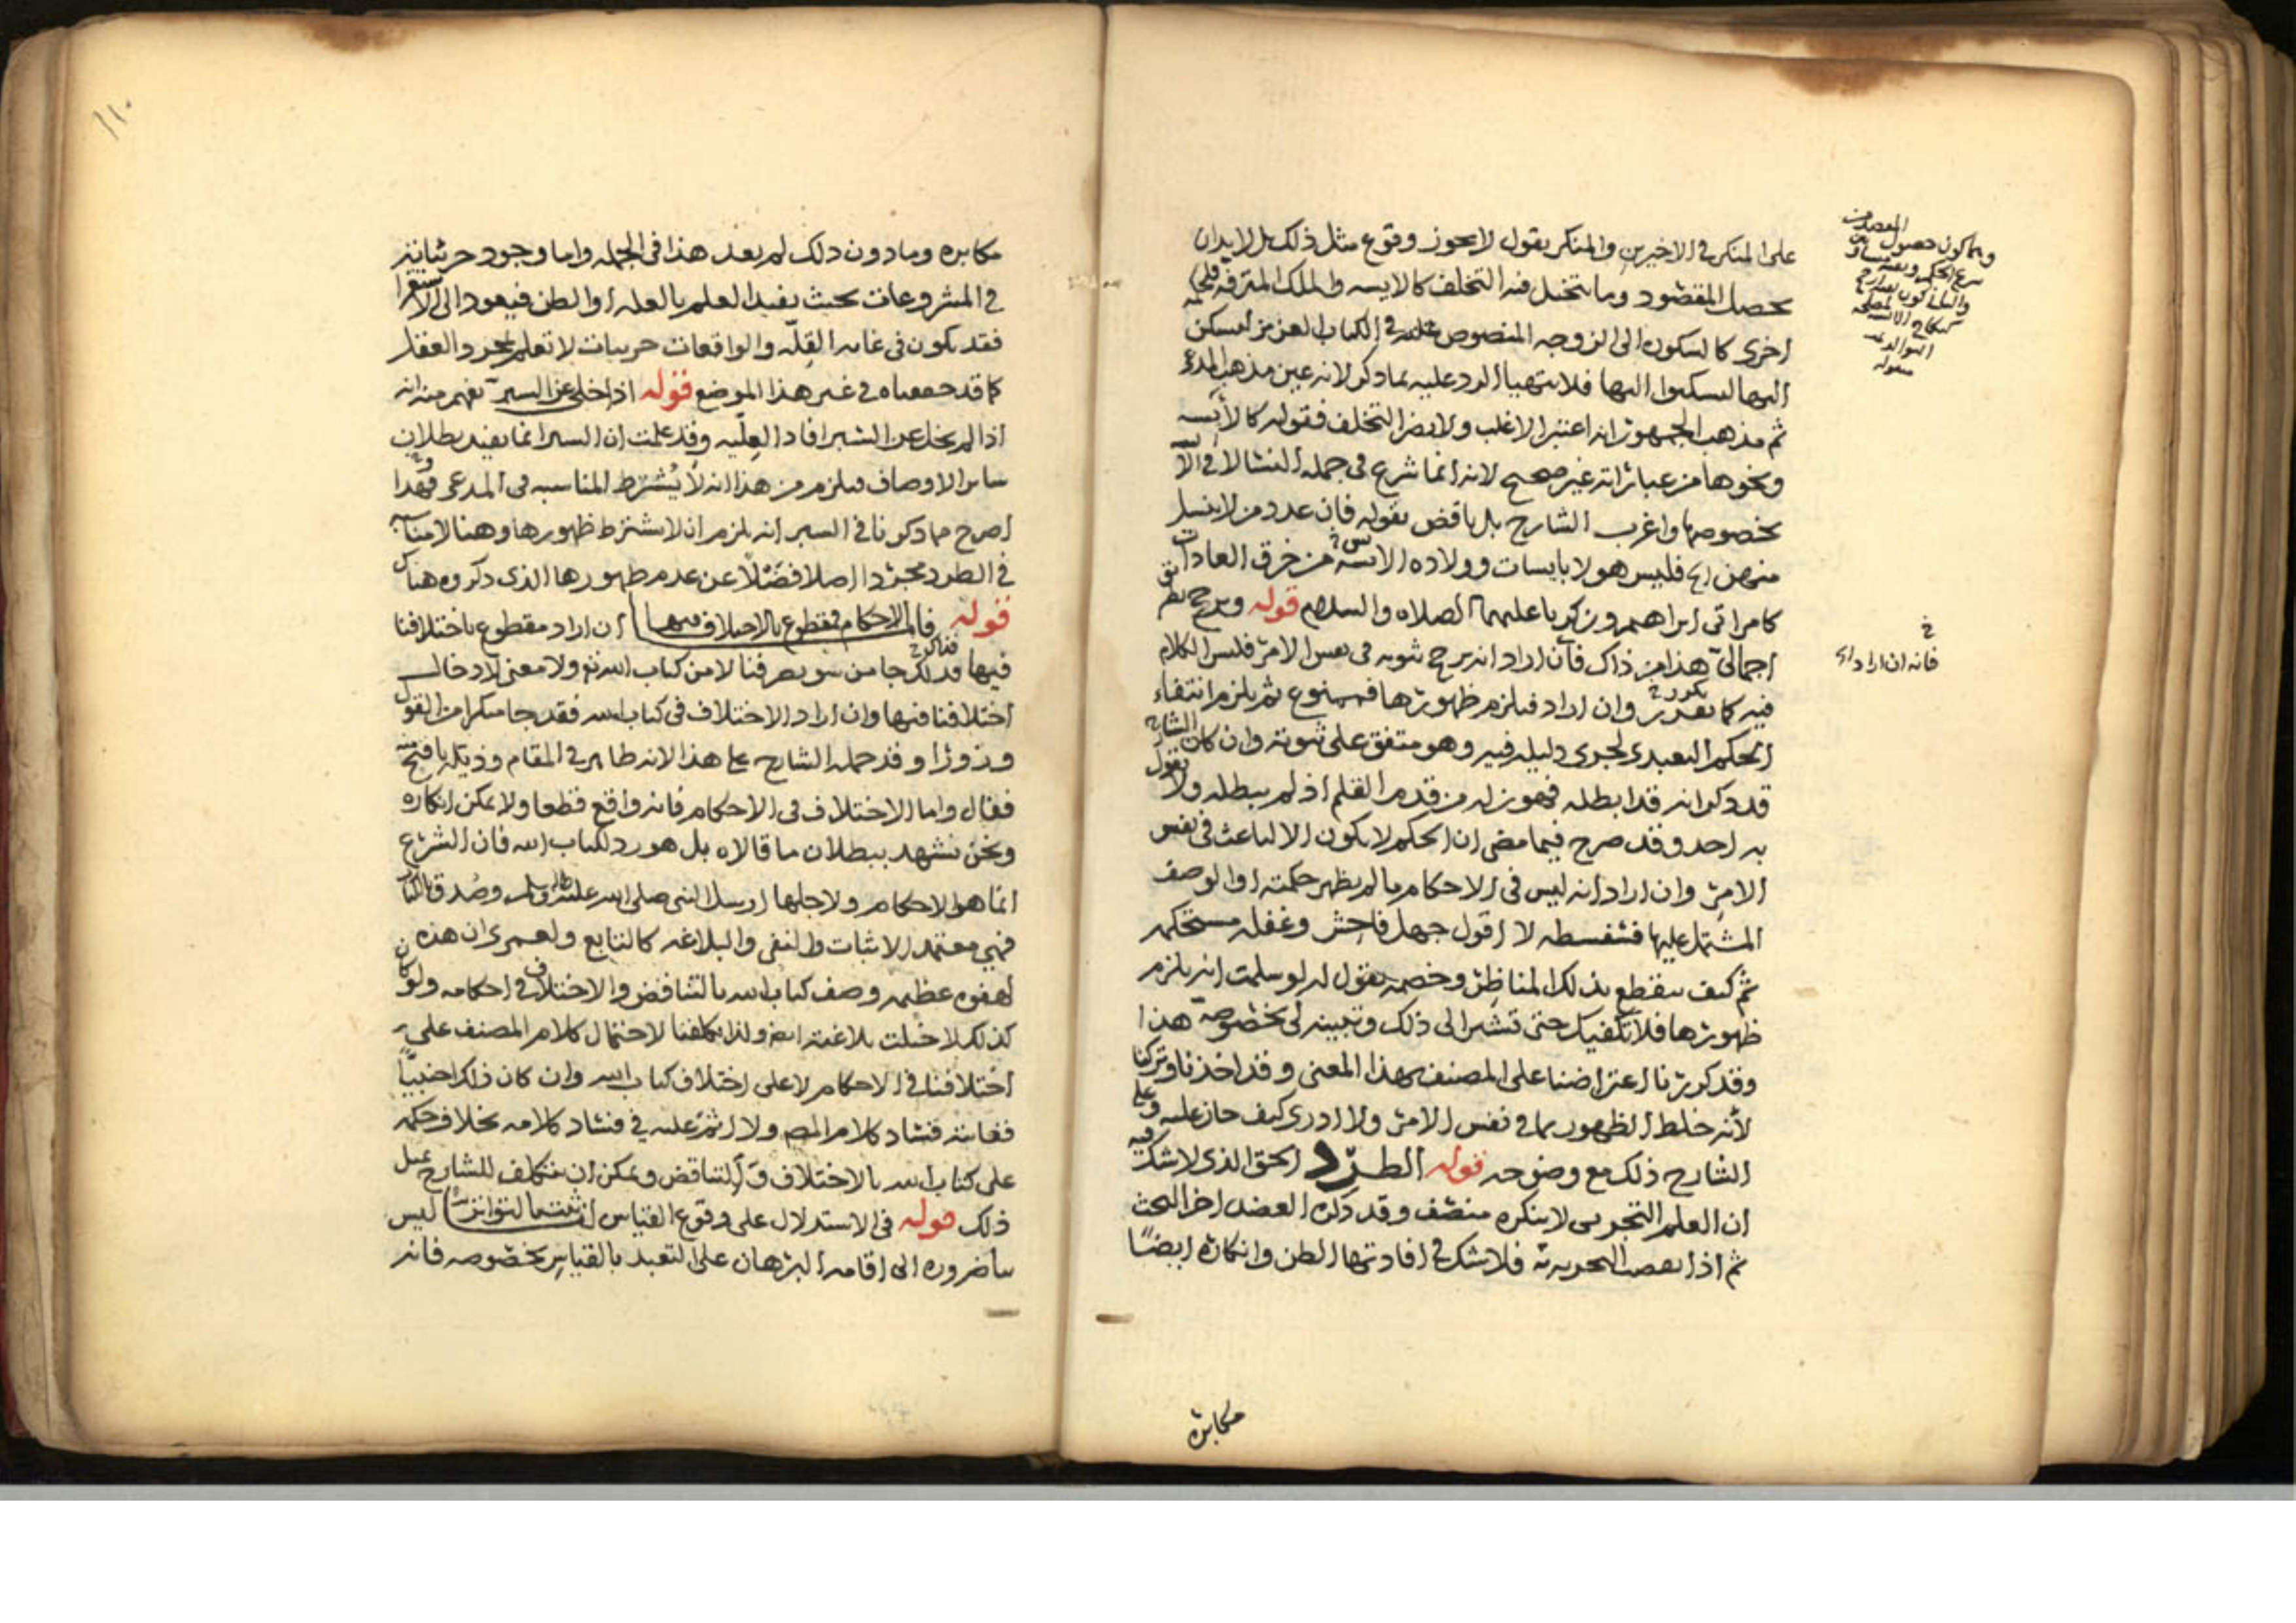 على المنكر في الاخيرين والمنكر يقول لا يجوز وقوع مثل ذلك بل لا بد ان
يحصل المقصود وما يتخيل فيه التخلف كالايسه والملك المترفه فلحكمه
اخرى كالسكون الى الزوجه المنصوص عليه في الكتاب العزيز ليسكن
اليها لتسكنوا اليها فلا يتهيا الرد عليه بما ذكر لانه عين مذهب المدعي
ثم مذهب الجمهور انه اعتبر الاغلب ولا يضر التخلف فقوله كالآيسه
ونحوها من عباراته غير صحيح لانه انما شرع في جمله النسا لا في الآيسه
بخصوصها واغرب الشارح بل ناقض بقوله فان عدد من لا ينسل
منهن الخ فليس هولا بايسات وولاده الايسه من خرق العادات
كامراتي ابراهيم وزكريا عليهما الصلاه والسلام قوله ويرجح
اجمالي هذا من ذاك فان اراد انه يرجح ثبوته في نفس الامر فليس الكلام
فيه كما تقدر وان اراد فيلزم ظهورها فممنوع ثم يلزم انتفاء
الحكم التعبدي لجري دليله فيه وهو متفق على ثبوته وان كان الشارح
قد ذكر انه قد ابطله فهو زله من قدم القلم اذ لم يبطله ولا يقول
به احد وقد صرح فيما مضى ان الحكم لا يكون الا لباعث في نفس
الامر وان اراد انه ليس في الاحكام ما لم يظهر حكمته او الوصف
المشتمل عليها فسفسطه لا اقول جهل فاحش وغفله مستحكمه
ثم كيف ينقطع بذلك المناظر وخصمه يقول له لو سلمت انه يلزم
ظهورها فلا تكفيك حتى تشير الى ذلك وتبينه لي بخصوصه هذا
وقد كررنا اعتراضنا على المصنف بهذا المعنى وقد اخذنا وتركنا
لانه خلط الظهور بما في نفس الامر ولا ادري كيف جاز عليه وعلى
الشارح ذلك مع وضوحه قوله الطرد الحق الذي لا شك فيه
ان العلم التجربي لا ينكره منصف وقد ذكره العضد اخر البحث
ثم اذا نقصت التجربه فلا شك في افادتها الظن وانكاره ايضًا
فانه ان اراد ان
مكابره
١١٠
مكابره وما دون ذلك لم يفد هذا في الجمله واما وجود جزئياته
في المشروعات بحيث يفيد العلم بالعله او الظن فيعود الى الاستقرا
فقد يكون في غايه القله والواقعات جزييات لا تعلم بمجرد العقل
كما قد حققناه في غير هذا الموضع قوله اذا خلي عن السبر يفهم منه انه
اذا لم يخل عن السبر افاد العليه وقد علمت ان السبر انما يفيد بطلان
ساير الاوصاف فيلزم من هذا انه لا يُشترط المناسبه في المدعى وهذا
اصرح مما ذكرنا في السبر انه يلزم ان لا يشترط ظهورها وهنا لا مناسبه
في الطرد مجردا اصلا فضلًا عن عدم ظهورها الذي ذكروه هناك
قوله فالاحكام فمقطوع بالاختلاف فيها ان اراد مقطوع باختلافنا
فيها فذلك جا من سو تصرفنا لا من كتاب الله تع ولا معنى لادخال
اختلافنا فيها وان اراد الاختلاف في كتاب الله فقد جا منكرا من القول
وزورا وقد حمله الشارح على هذا لانه ظاهر في المقام وذيله باقبح منه
فقال واما الاختلاف في الاحكام فانه واقع قطعا ولا يمكن انكاره
ونحن نشهد ببطلان ما قالاه بل هو رد لكتاب الله فان الشرع
انما هو الاحكام ولاجلها ارسل النبي صلى الله عليه واله وسلم وصدق بالكتاب
فهي معتمد الاثبات والنفي والبلاغه كالتابع ولعمري ان هذه
لهفوه عظيمه وصف كتاب الله بالتناقض والاختلاف في احكامه ولو كان
كذلك لاختلت بلاغته ايضا ولذا تكلفنا لاحتمال كلام المصنف على
اختلافنا في الاحكام لا على اختلاف كتاب الله وان كان ذلك اجنبيًا
فغايته فساد كلام المص ولا اثم عليه في فساد كلامه بخلاف حكمه
على كتاب الله بالاختلاف والتناقض ويمكن ان نتكلف للشارح بمثل
ذلك قوله في الاستدلال على وقوع القياس لنا ثبت بالتواتر ليس
بنا ضروره الى اقامه البرهان على التعبد بالقياس بخصوصه فانه